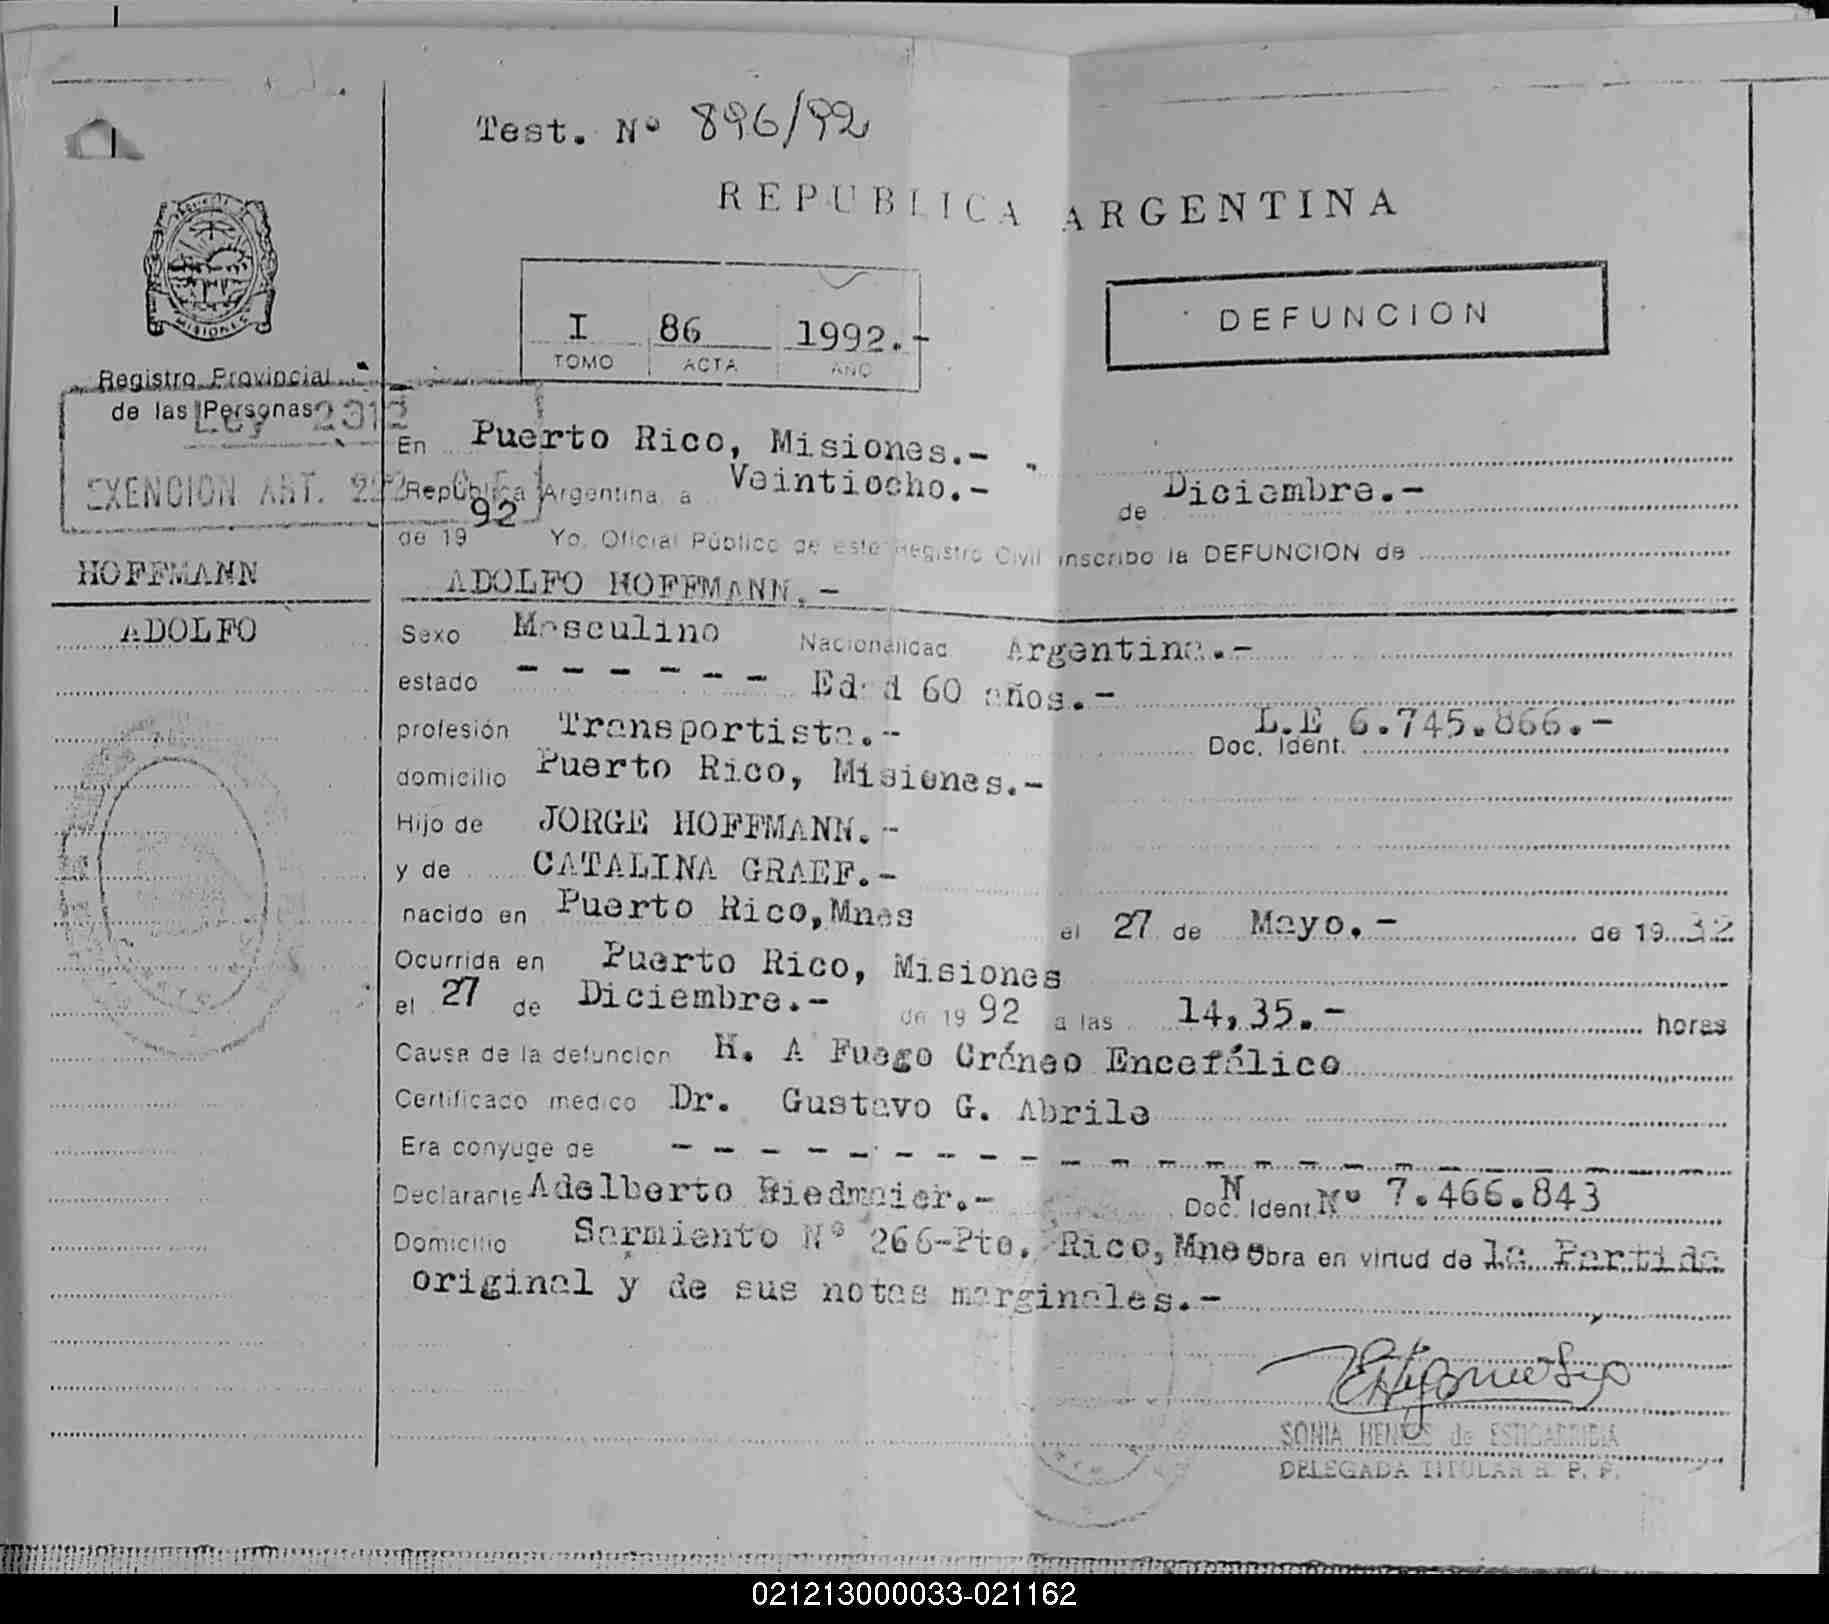 Test. Nº 896/92
REPUBLICA ARGENTINA
MISIONES
DEFUNCION
I 86 1992.-
TOMO ACTA AÑO
Registro Provincial
de las Personas
Ley 2312
EXENCION ART. 222
HOFFMANN
ADOLFO
En Puerto Rico, Misiones.-
República Argentina, a Veintiocho.- de Diciembre.-
de 19 92 Yo, Oficial Público de este Registro Civil inscribo la DEFUNCION de
ADOLFO HOFFMANN.-
Sexo Masculino Nacionalidad Argentina.-
estado - - - - - - Edad 60 años.-
profesión Transportista.- Doc. Ident. L.E 6.745.866.-
domicilio Puerto Rico, Misiones.-
Hijo de JORGE HOFFMANN.-
y de CATALINA GRAEF.-
nacido en Puerto Rico,Mnes el 27 de Mayo.- de 19 32
Ocurrida en Puerto Rico, Misiones
el 27 de Diciembre.- de 19 92 a las 14,35.- horas
Causa de la defuncion H. A Fuego Cráneo Encefálico
Certificado medico Dr. Gustavo G. Abrile
Era conyuge de - - - - - - - - - - - - - - - - - - - - - - - -
Declarante Adelberto Riedmaier.- Doc. Ident. N Nº 7.466.843
Domicilio Sarmiento Nº 266-Pto. Rico, Mnes Obra en virtud de la Partida
original y de sus notas marginales.-
SONIA HENNES de ESTIGARRIBIA
DELEGADA TITULAR R. P. P.
021213000033-021162